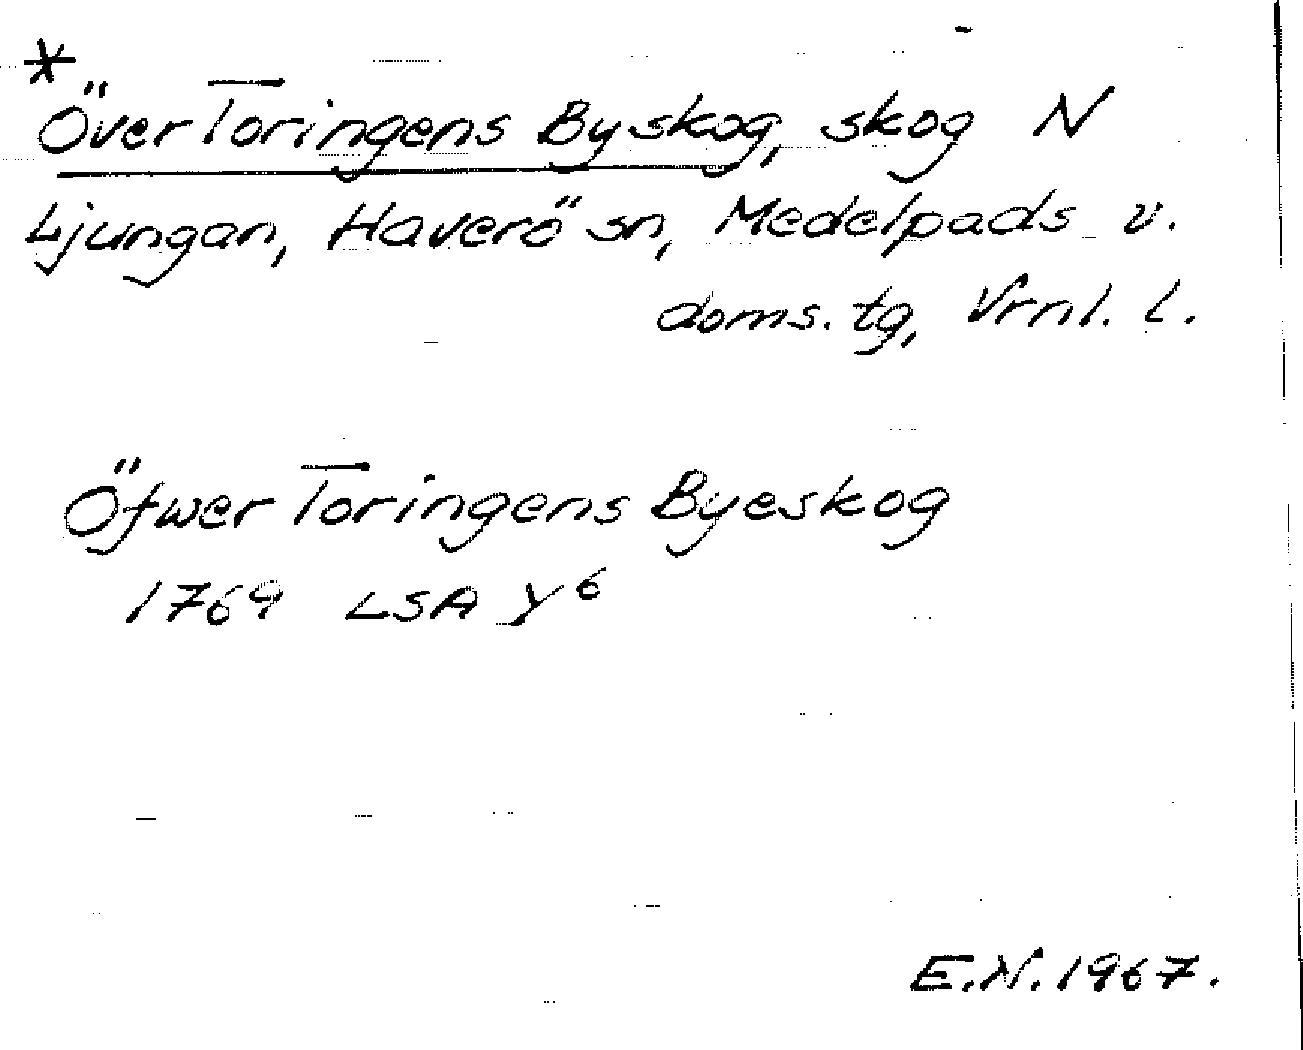 *
Över Toringens Byskog, skog N
Ljungan, Haverö sn, Medelpads v.
doms. tg, Vrnl. l.
Öfwer Toringens Byeskog
1769 LSA Y⁶
E.N. 1967.